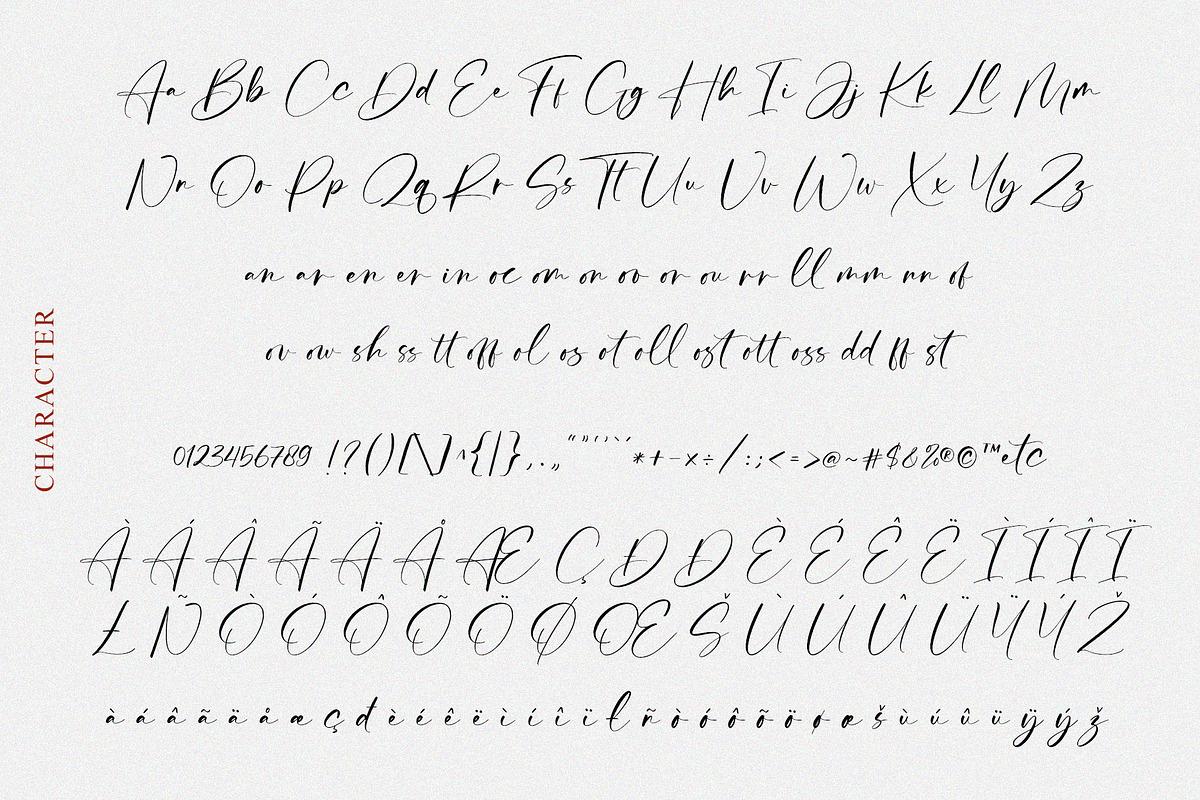 CHARACTER
Aa Bb Cc Dd Ee Ff Gg Hh Ii Jj Kk Ll Mm
Nn Oo Pp Qq Rr Ss Tt Uu Vv Ww Xx Yy Zz
an ar en er in oe om on oo or ou rr ll mm nn of
ov ow sh ss tt off ol os ot oll ost ott oss dd ff st
0123456789 !?()[\]^{|},.„ “”‘’`´ *+-×÷/:;<=>@~#$&%®©™etc
À Á Â Ã Ä Å Æ Ç Đ Ð È É Ê Ë Ì Í Î Ï
Ł Ñ Ò Ó Ô Õ Ö Ø Œ Š Ù Ú Û Ü Ÿ Ý Ž
à á â ã ä å æ ç đ è é ê ë ì í î ï ł ñ ò ó ô õ ö ø œ š ù ú û ü ÿ ý ž